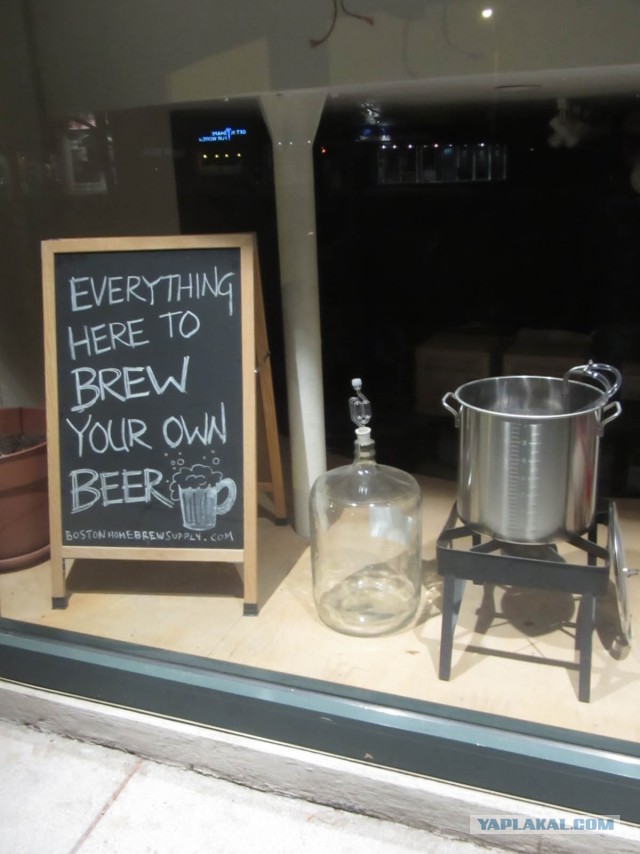 EVERYTHING
HERE TO
BREW
YOUR OWN
BEER
BOSTONHOMEBREWSUPPLY.COM
YAPLAKAL.COM